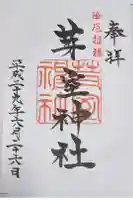 奉拝
芽室神社
平成二十九年六月二十六日